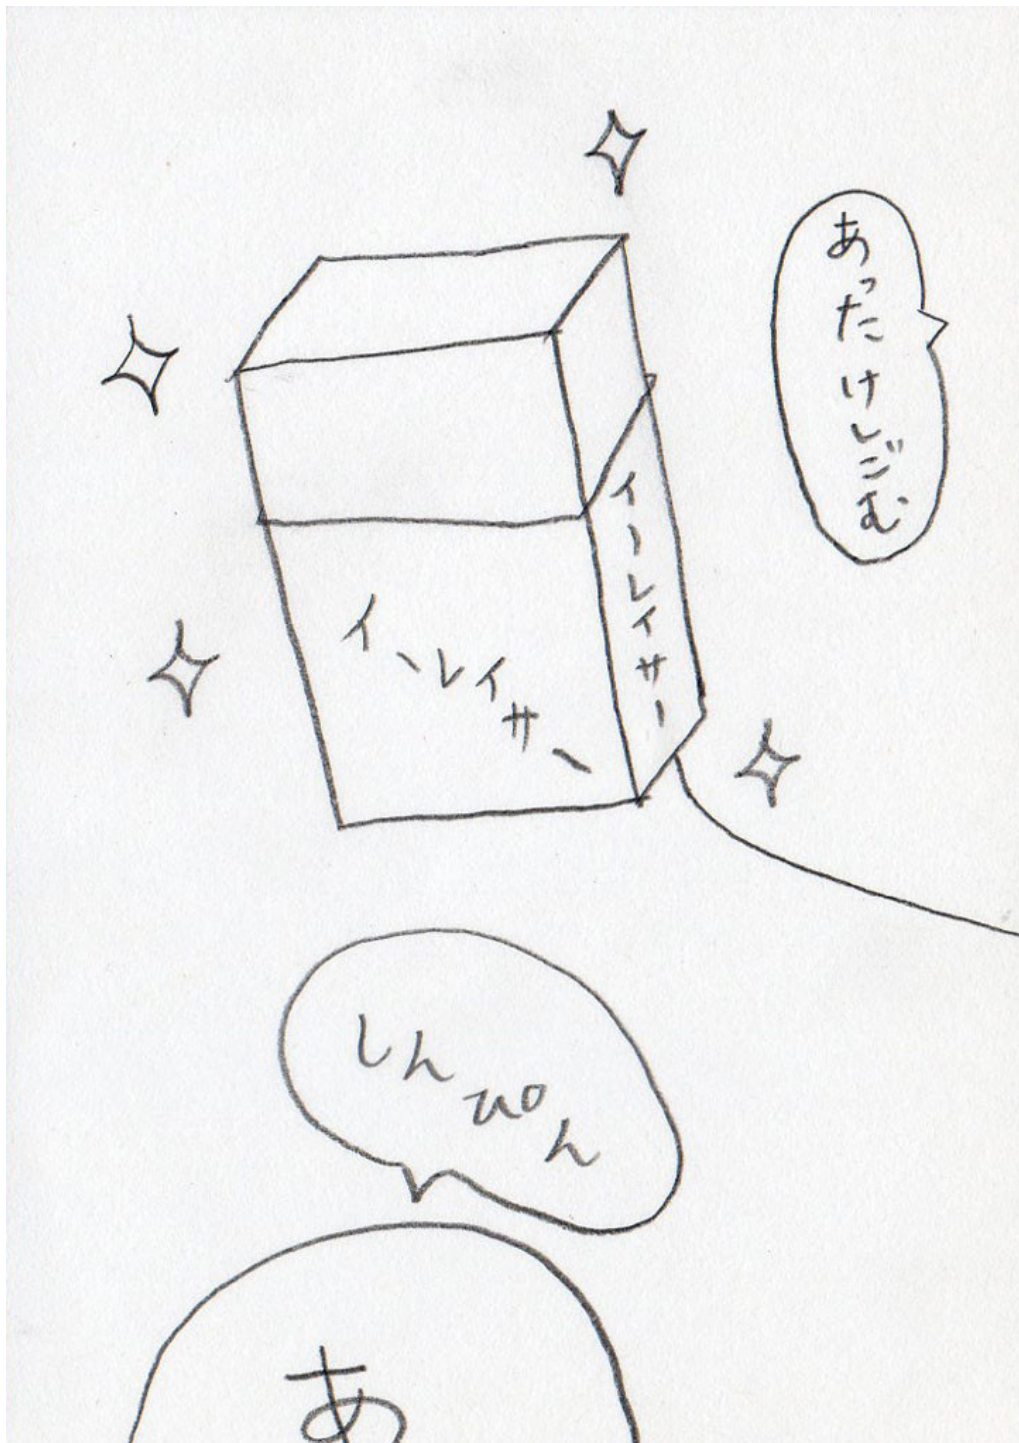 あったけしごむ
イーレイサー
イーレイサー
しんぴん
あ